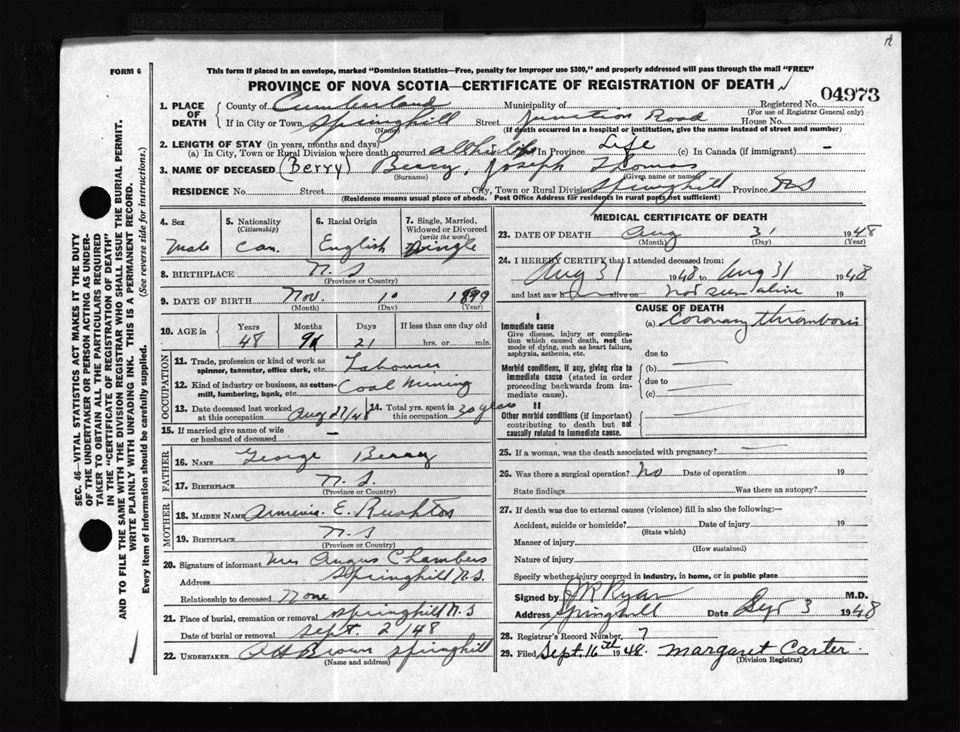 FORM 6
This form if placed in an envelope, marked "Dominion Statistics—Free, penalty for improper use $300," and properly addressed will pass through the mail "FREE"
PROVINCE OF NOVA SCOTIA—CERTIFICATE OF REGISTRATION OF DEATH
04973
1. PLACE OF DEATH
County of Cumberland Municipality of Registered No.
(For use of Registrar General only)
If in City or Town Springhill Street Junction Road House No.
(Name) (If death occurred in a hospital or institution, give the name instead of street and number)
2. LENGTH OF STAY (in years, months and days)
(a) In City, Town or Rural Division where death occurred all his life In Province Life (c) In Canada (if immigrant) —
3. NAME OF DECEASED (Berry) Berry, Joseph Thomas
(Surname) (Given name or names)
RESIDENCE No. Street City, Town or Rural Division Springhill Province NS
(Residence means usual place of abode. Post Office Address for residents in rural parts not sufficient)
4. Sex
Male
5. Nationality
(Citizenship)
Can.
6. Racial Origin
English
7. Single, Married, Widowed or Divorced
(write the word)
Single
8. BIRTHPLACE N. S
(Province or Country)
9. DATE OF BIRTH Nov. 10 1899
(Month) (Day) (Year)
10. AGE in
Years Months Days If less than one day old
48 9 21 hrs. or min.
OCCUPATION
11. Trade, profession or kind of work as spinner, teamster, office clerk, etc. Labourer
12. Kind of industry or business, as cotton-mill, lumbering, bank, etc. Coal Mining
13. Date deceased last worked at this occupation Aug 27/48
14. Total yrs. spent in this occupation 30 years
15. If married give name of wife or husband of deceased —
FATHER
16. NAME George Berry
17. BIRTHPLACE N. S.
(Province or Country)
MOTHER
18. MAIDEN NAME Armenia E. Rushton
19. BIRTHPLACE N. S
(Province or Country)
20. Signature of informant Mrs Angus Chambers
Address Springhill N.S.
Relationship to deceased None
21. Place of burial, cremation or removal Springhill N.S
Date of burial or removal Sept. 2/48
22. UNDERTAKER Brown Springhill
(Name and address)
MEDICAL CERTIFICATE OF DEATH
23. DATE OF DEATH Aug 31 1948
(Month) (Day) (Year)
24. I HEREBY CERTIFY that I attended deceased from:
Aug 31 1948 to Aug 31 1948
and last saw h alive on not seen alive 19
CAUSE OF DEATH
I
Immediate cause
Give disease, injury or complication which caused death, not the mode of dying, such as heart failure, asphyxia, asthenia, etc.
(a) Coronary thrombosis
due to
Morbid conditions, if any, giving rise to immediate cause (stated in order proceeding backwards from immediate cause).
(b)
due to
(c)
II
Other morbid conditions (if important) contributing to death but not causally related to immediate cause.
25. If a woman, was the death associated with pregnancy? —
26. Was there a surgical operation? No Date of operation 19
State findings Was there an autopsy?
27. If death was due to external causes (violence) fill in also the following:—
Accident, suicide or homicide? Date of injury 19
(State which)
Manner of injury
(How sustained)
Nature of injury
Specify whether injury occurred in industry, in home, or in public place
Signed by J R Ryan M.D.
Address Springhill Date Sept 3 1948
28. Registrar's Record Number 7
29. Filed Sept. 16th 1948. Margaret Carter.
(Division Registrar)
SEC. 46—VITAL STATISTICS ACT MAKES IT THE DUTY
OF THE UNDERTAKER OR PERSON ACTING AS UNDER-
TAKER TO OBTAIN ALL THE PARTICULARS REQUIRED
IN THE "CERTIFICATE OF REGISTRATION OF DEATH"
AND TO FILE THE SAME WITH THE DIVISION REGISTRAR WHO SHALL ISSUE THE BURIAL PERMIT.
WRITE PLAINLY WITH UNFADING INK. THIS IS A PERMANENT RECORD.
Every item of information should be carefully supplied. (See reverse side for instructions.)